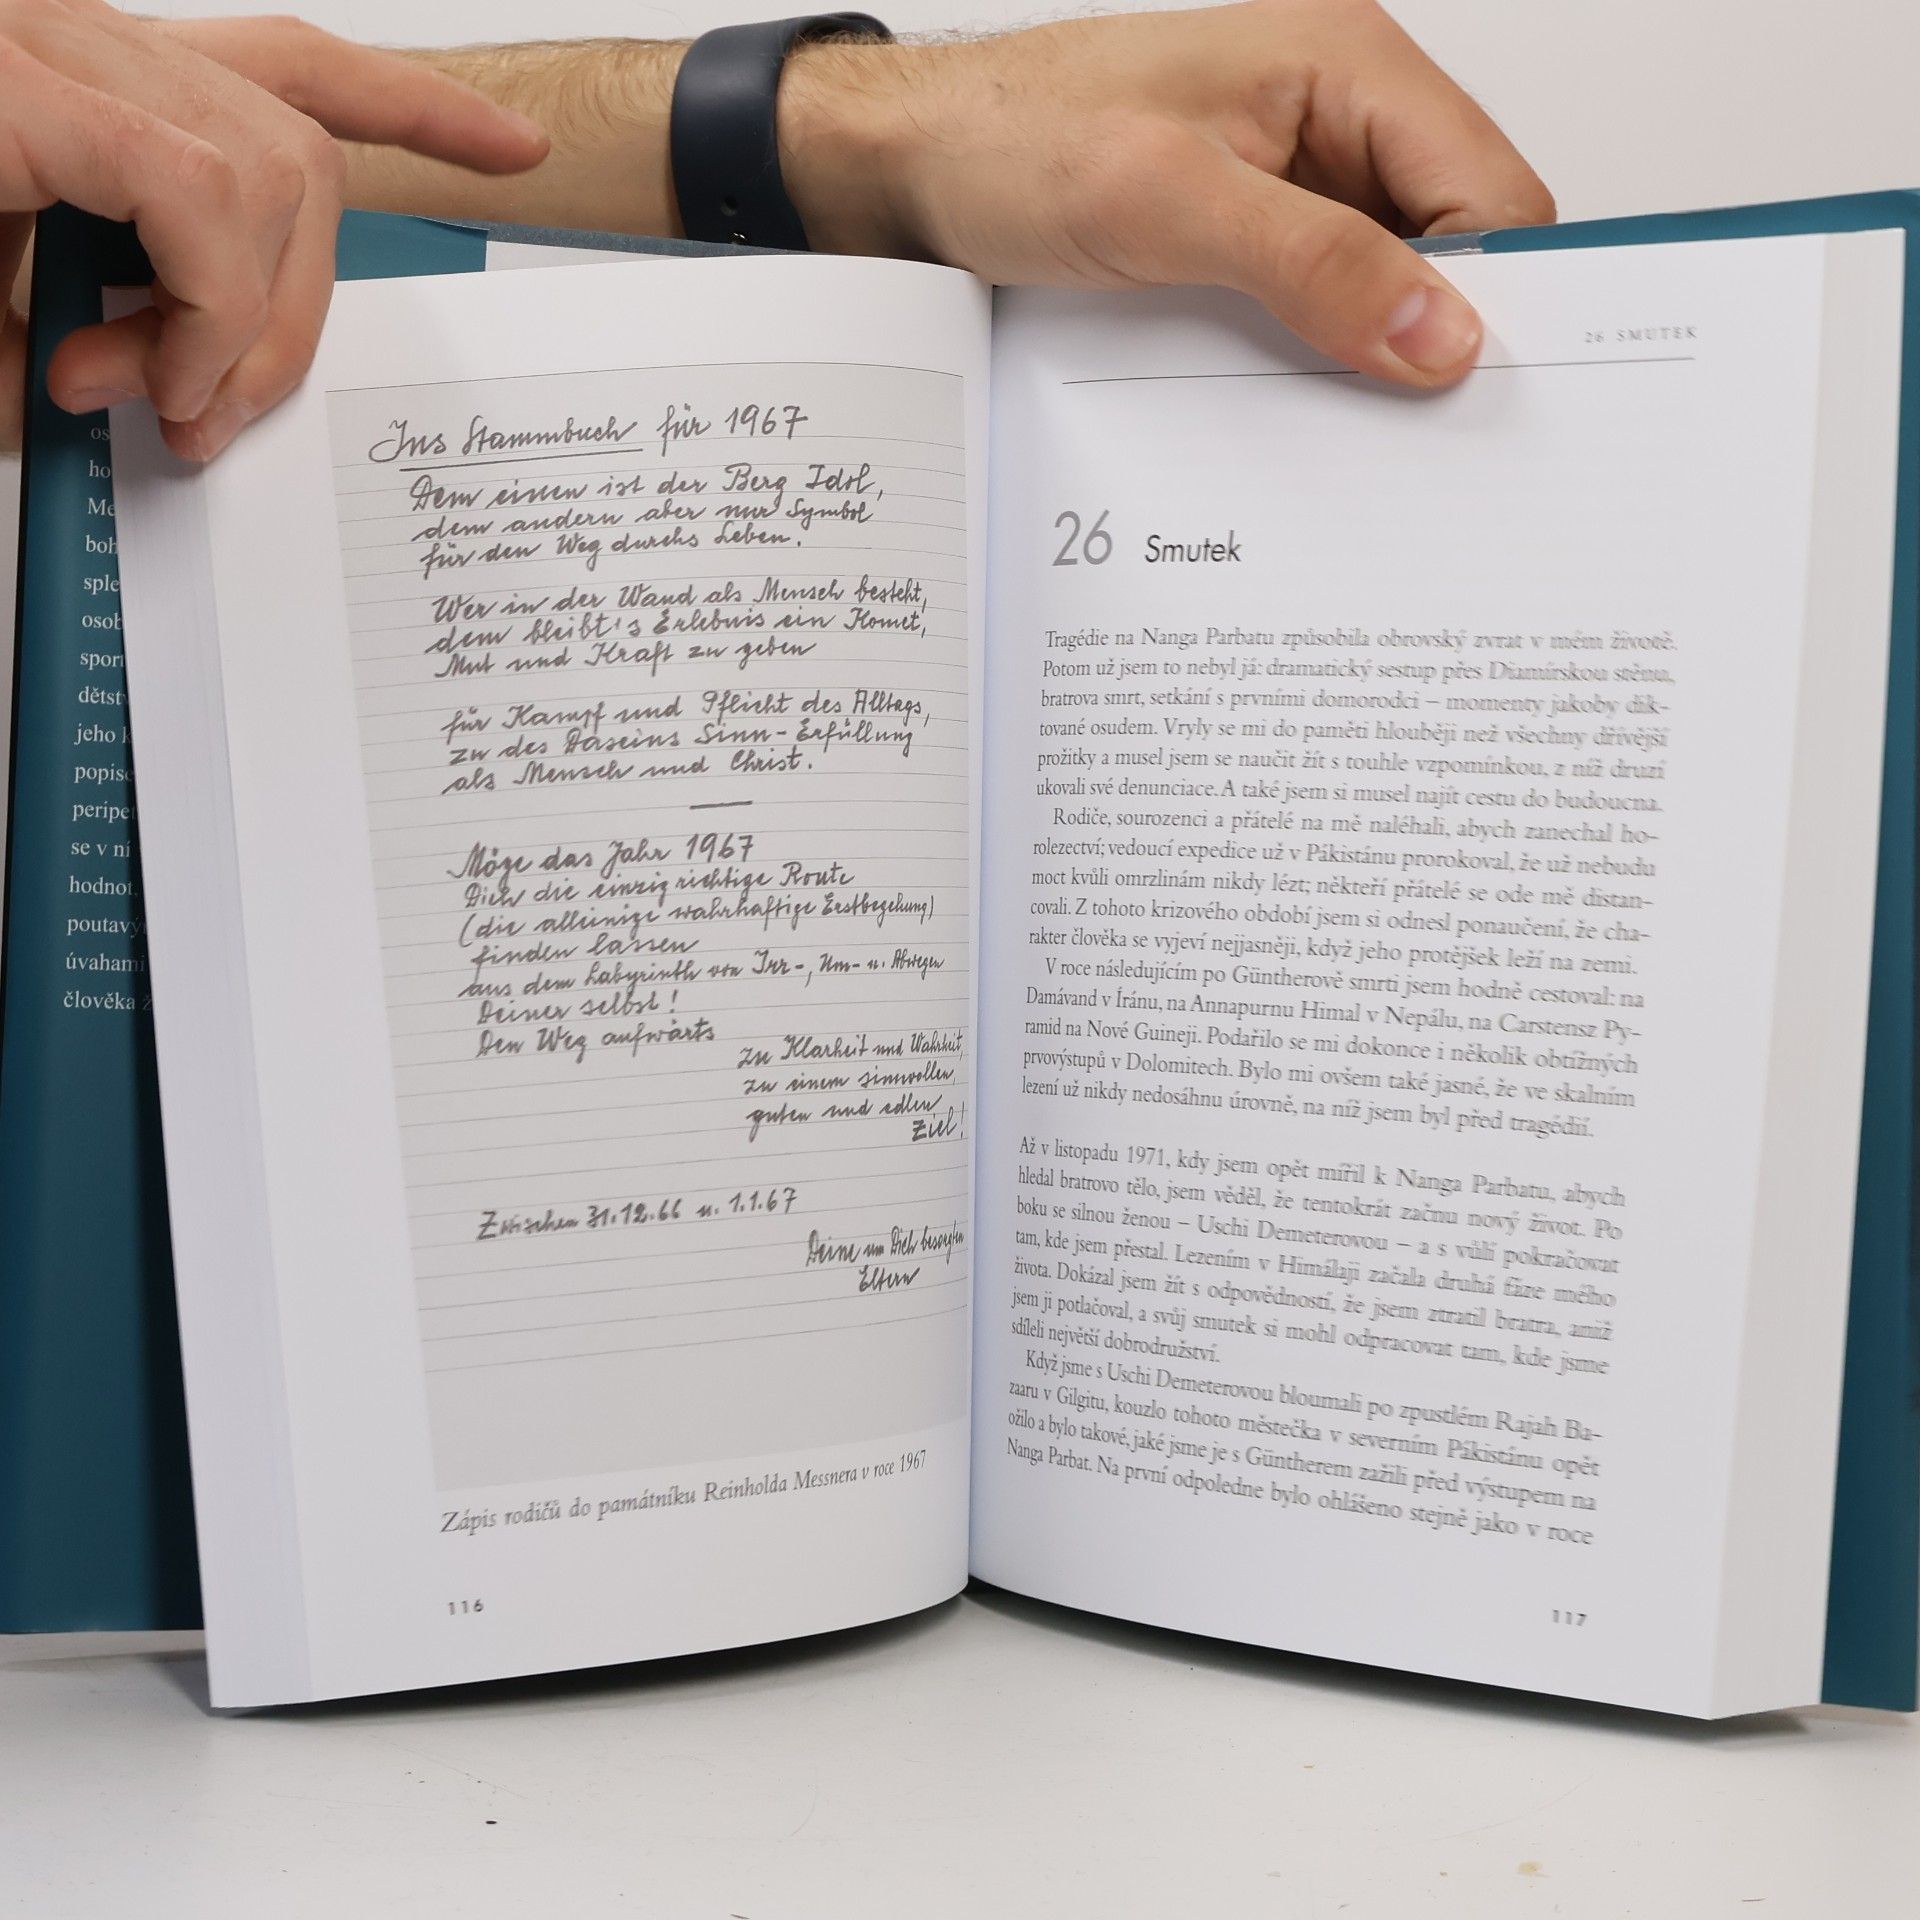 os
ho
Me
boh
sple
osob
sport
dětst
jeho k
popisc
peripe
se v ní
hodnot,
poutavý
úvahami
člověka ž
Ins Stammbuch für 1967
Dem einen ist der Berg Idol,
dem andern aber nur Symbol
für den Weg durchs Leben.
Wer in der Wand als Mensch besteht,
dem bleibt's Erlebnis ein Komet,
Mut und Kraft zu geben
für Kampf und Pflicht des Alltags,
zu des Daseins Sinn-Erfüllung
als Mensch und Christ.
Möge das Jahr 1967
Dich die einzig richtige Route
(die alleinige wahrhaftige Erstbegehung)
finden lassen
aus dem Labyrinth von Irr-, Um- u. Abwegen
Deiner selbst!
Den Weg aufwärts
zu Klarheit und Wahrheit,
zu einem sinnvollen,
guten und edlen
Ziel!
Zwischen 31.12.66 u. 1.1.67
Deine um Dich besorgten
Eltern
Zápis rodičů do památníku Reinholda Messnera v roce 1967
116
26 SMUTEK
26 Smutek
Tragédie na Nanga Parbatu způsobila obrovský zvrat v mém životě.
Potom už jsem to nebyl já: dramatický sestup přes Diamírskou stěnu,
bratrova smrt, setkání s prvními domorodci – momenty jakoby dik-
tované osudem. Vryly se mi do paměti hlouběji než všechny dřívější
prožitky a musel jsem se naučit žít s touhle vzpomínkou, z níž druzí
ukovali své denunciace. A také jsem si musel najít cestu do budoucna.
Rodiče, sourozenci a přátelé na mě naléhali, abych zanechal ho-
rolezectví; vedoucí expedice už v Pákistánu prorokoval, že už nebudu
moct kvůli omrzlinám nikdy lézt; někteří přátelé se ode mě distan-
covali. Z tohoto krizového období jsem si odnesl ponaučení, že cha-
rakter člověka se vyjeví nejjasněji, když jeho protějšek leží na zemi.
V roce následujícím po Güntherově smrti jsem hodně cestoval: na
Damávand v Íránu, na Annapurnu Himal v Nepálu, na Carstensz Py-
ramid na Nové Guineji. Podařilo se mi dokonce i několik obtížných
prvovýstupů v Dolomitech. Bylo mi ovšem také jasné, že ve skalním
lezení už nikdy nedosáhnu úrovně, na níž jsem byl před tragédií.
Až v listopadu 1971, kdy jsem opět mířil k Nanga Parbatu, abych
hledal bratrovo tělo, jsem věděl, že tentokrát začnu nový život. Po
boku se silnou ženou – Uschi Demeterovou – a s vůlí pokračovat
tam, kde jsem přestal. Lezením v Himálaji začala druhá fáze mého
života. Dokázal jsem žít s odpovědností, že jsem ztratil bratra, aniž
jsem ji potlačoval, a svůj smutek si mohl odpracovat tam, kde jsme
sdíleli největší dobrodružství.
Když jsme s Uschi Demeterovou bloumali po zpustlém Rajah Ba-
zaaru v Gilgitu, kouzlo tohoto městečka v severním Pákistánu opět
ožilo a bylo takové, jaké jsme je s Güntherem zažili před výstupem na
Nanga Parbat. Na první odpoledne bylo ohlášeno stejně jako v roce
117